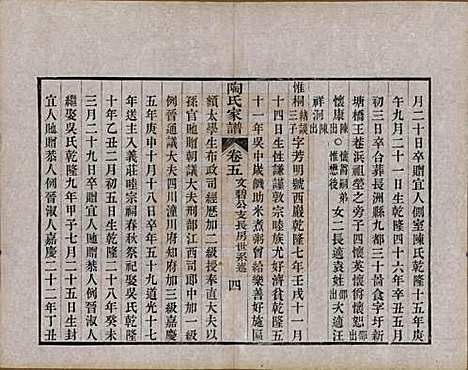 月二十日卒贈宜人側室陳氏乾隆十五年庚
午九月二十一日生乾隆四十六年辛丑五月
初三日卒合葬長洲縣九都三十啬食字圩新
塘橋王巷浜祖塋之旁子四懷英懷恕出
懷康出陳懷誾嗣弟惟懋後女二長適袁姓出次適汪
祥洞出陳
惟桐三子字芳明號西巖乾隆七年壬戌十一月
十四日生性謙謹敦宗睦族尤好濟貧乾隆五
十一年吳中歲饑助米煮粥曾給樂善好施匾
額太學生布政司經歷加二級授奉直大夫
孫官贈通議大夫刑部江西司郎中加三級嘉慶
例晉通議大夫四川潼川府知府加三級嘉慶
五年庚申十月十八日卒年五十九道光十七
年送主入義莊睦宗祠春秋祭祀娶吳氏乾隆
十年乙丑二月初五日生乾隆二十八年癸未
三月二十九日卒貤贈恭人例晉淑人
繼娶吳氏乾隆九年甲子七月二十五日生封
宜人貤贈恭人例晉淑人嘉慶二十二年丁丑
陶氏家譜
卷五
文碧公支長房世系述
四